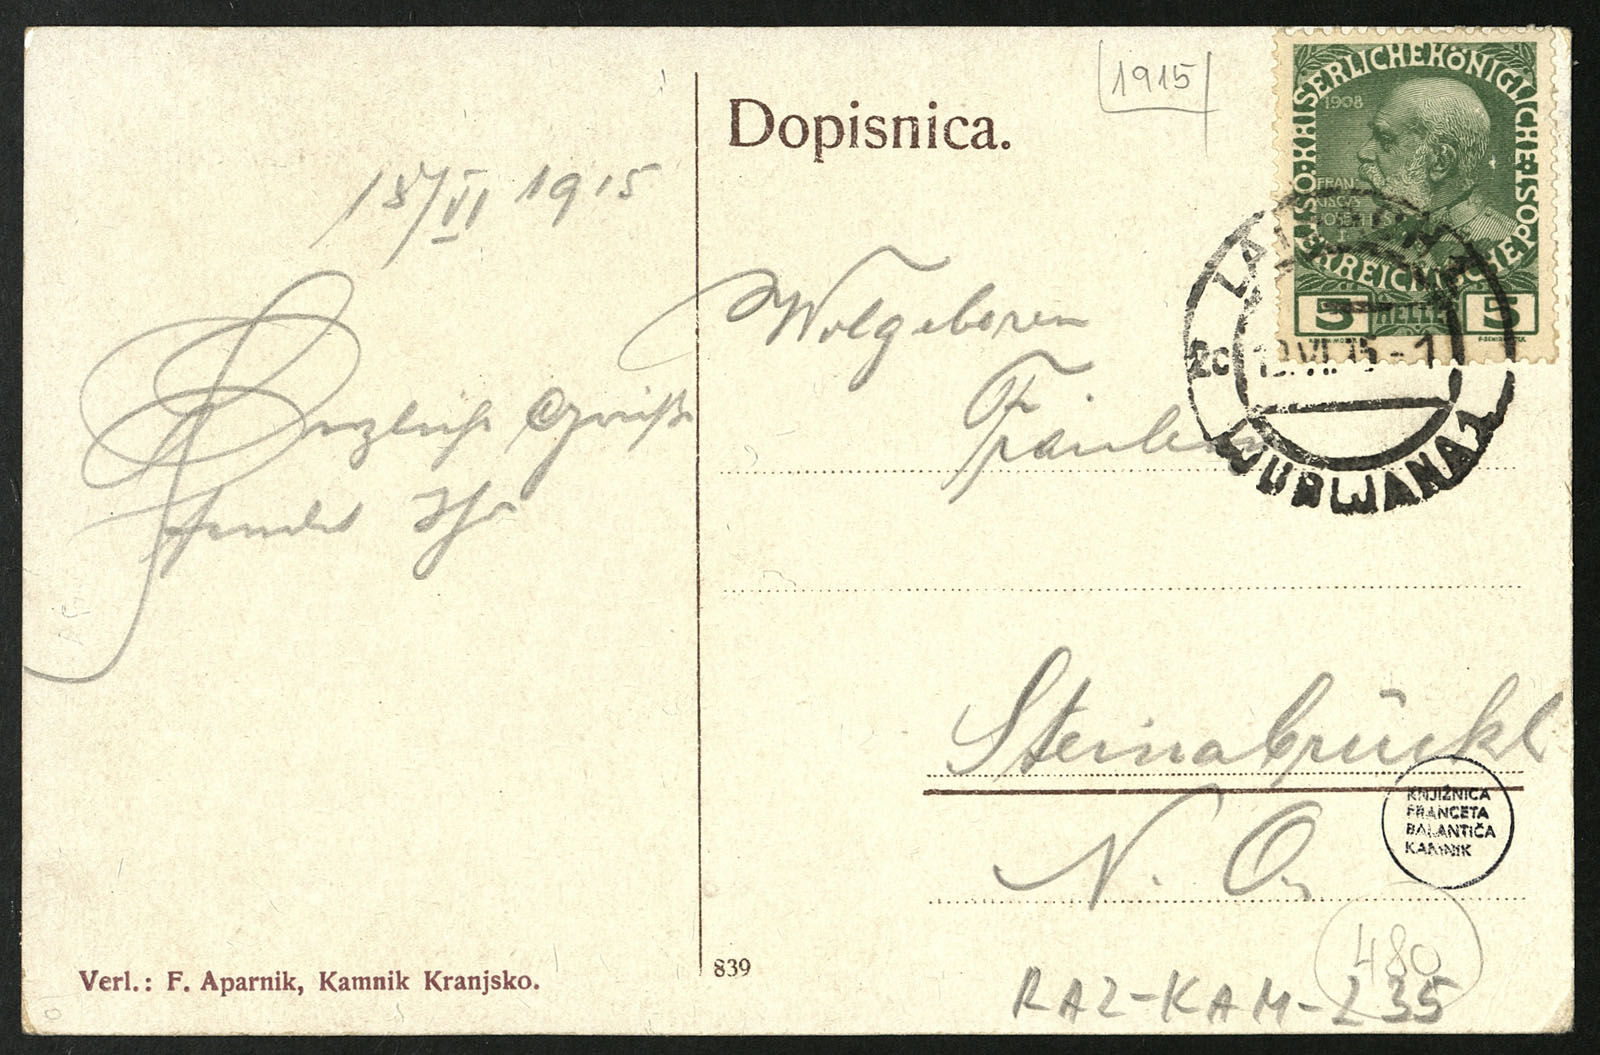 1915
Dopisnica.
18/VI 1915
Herzliche Grüße
sendet Ihr
Wolgeboren
Fräulein
Steinabrückl
N. Ö.
KAISERLICHE KÖNIGLICHE
ÖSTERREICHISCHE POST
1908
FRAN
CISCVS
IOSEPH
I
5 HELLER 5
LAIBACH 1
2c 19.VI.15-1
LJUBLJANA 1
KNJIŽNICA
FRANCETA
BALANTIČA
KAMNIK
480
Verl.: F. Aparnik, Kamnik Kranjsko.
839
RAZ-KAM-235